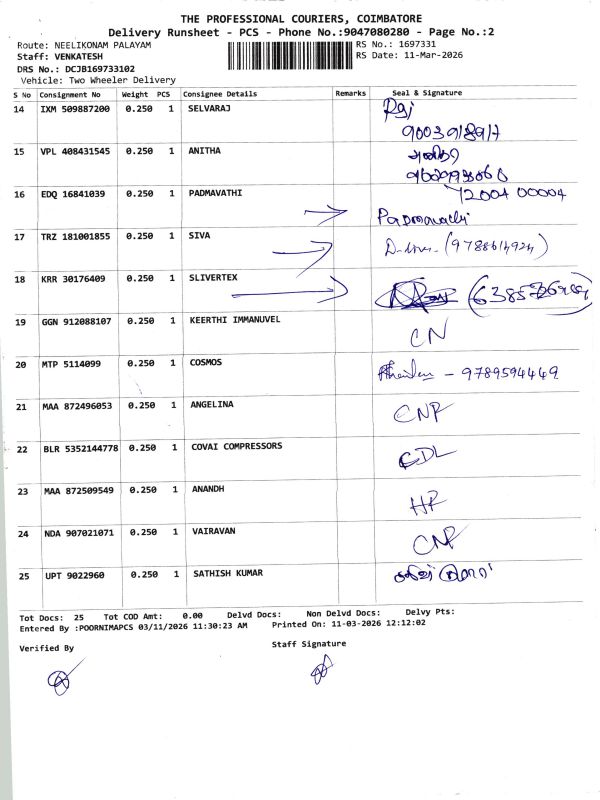 THE PROFESSIONAL COURIERS, COIMBATORE
Delivery Runsheet - PCS - Phone No.:9047080280 - Page No.:2
Route: NEELIKONAM PALAYAM RS No.: 1697331
Staff: VENKATESH RS Date: 11-Mar-2026
DRS No.: DCJB169733102
Vehicle: Two Wheeler Delivery
S No Consignment No Weight PCS Consignee Details Remarks Seal & Signature
14 IXM 509887200 0.250 1 SELVARAJ
15 VPL 408431545 0.250 1 ANITHA
16 EDQ 16841039 0.250 1 PADMAVATHI 72004 00004
Padmavathi
17 TRZ 181001855 0.250 1 SIVA
18 KRR 30176409 0.250 1 SLIVERTEX
19 GGN 912088107 0.250 1 KEERTHI IMMANUVEL CN
20 MTP 5114099 0.250 1 COSMOS - 9789594449
21 MAA 872496053 0.250 1 ANGELINA CNR
22 BLR 5352144778 0.250 1 COVAI COMPRESSORS CDL
23 MAA 872509549 0.250 1 ANANDH HR
24 NDA 907021071 0.250 1 VAIRAVAN CNR
25 UPT 9022960 0.250 1 SATHISH KUMAR
Tot Docs: 25 Tot COD Amt: 0.00 Delvd Docs: Non Delvd Docs: Delvy Pts:
Entered By :POORNIMAPCS 03/11/2026 11:30:23 AM Printed On: 11-03-2026 12:12:02
Verified By Staff Signature